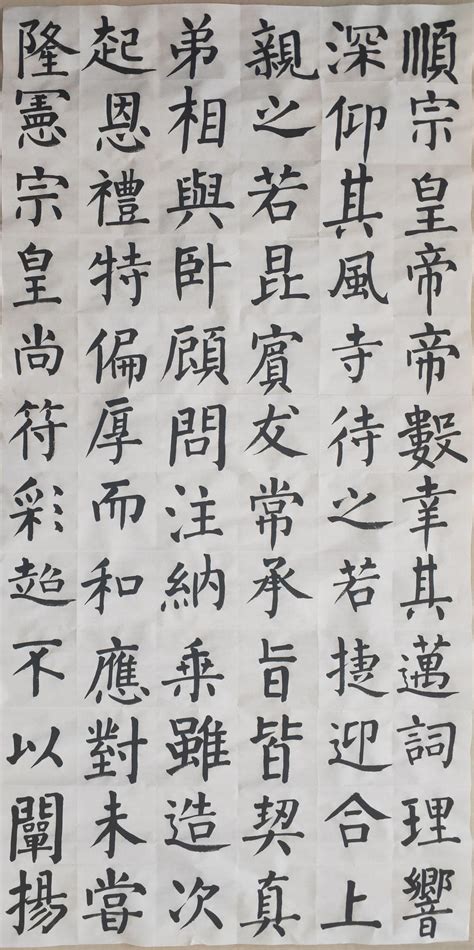 順宗皇帝帝數幸其邁詞理響
深仰其風寺待之若捷迎合上
親之若昆賓友常承旨皆契真
弟相與卧顧問注納乘雖造次
起恩禮特偏厚而和應對未嘗
隆憲宗皇尚符彩超不以闡揚